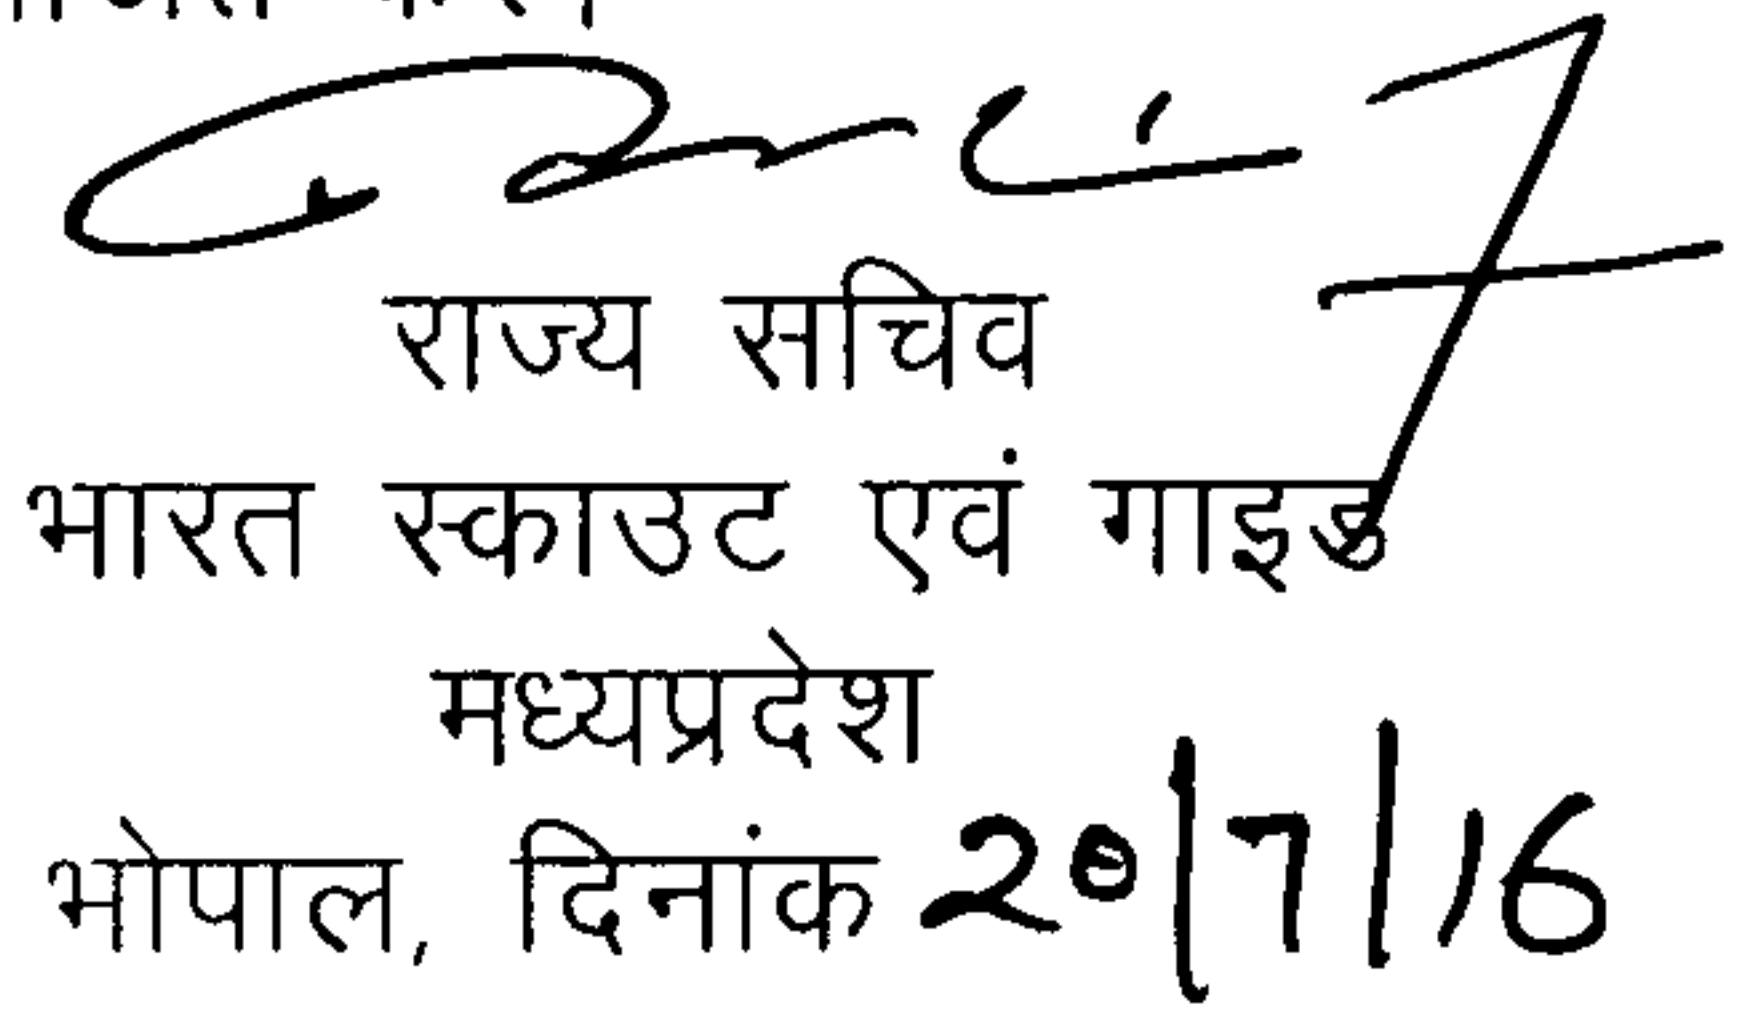 राज्य सचिव
भारत स्काउट एवं गाइड
मध्यप्रदेश
भोपाल, दिनांक 20/7/16